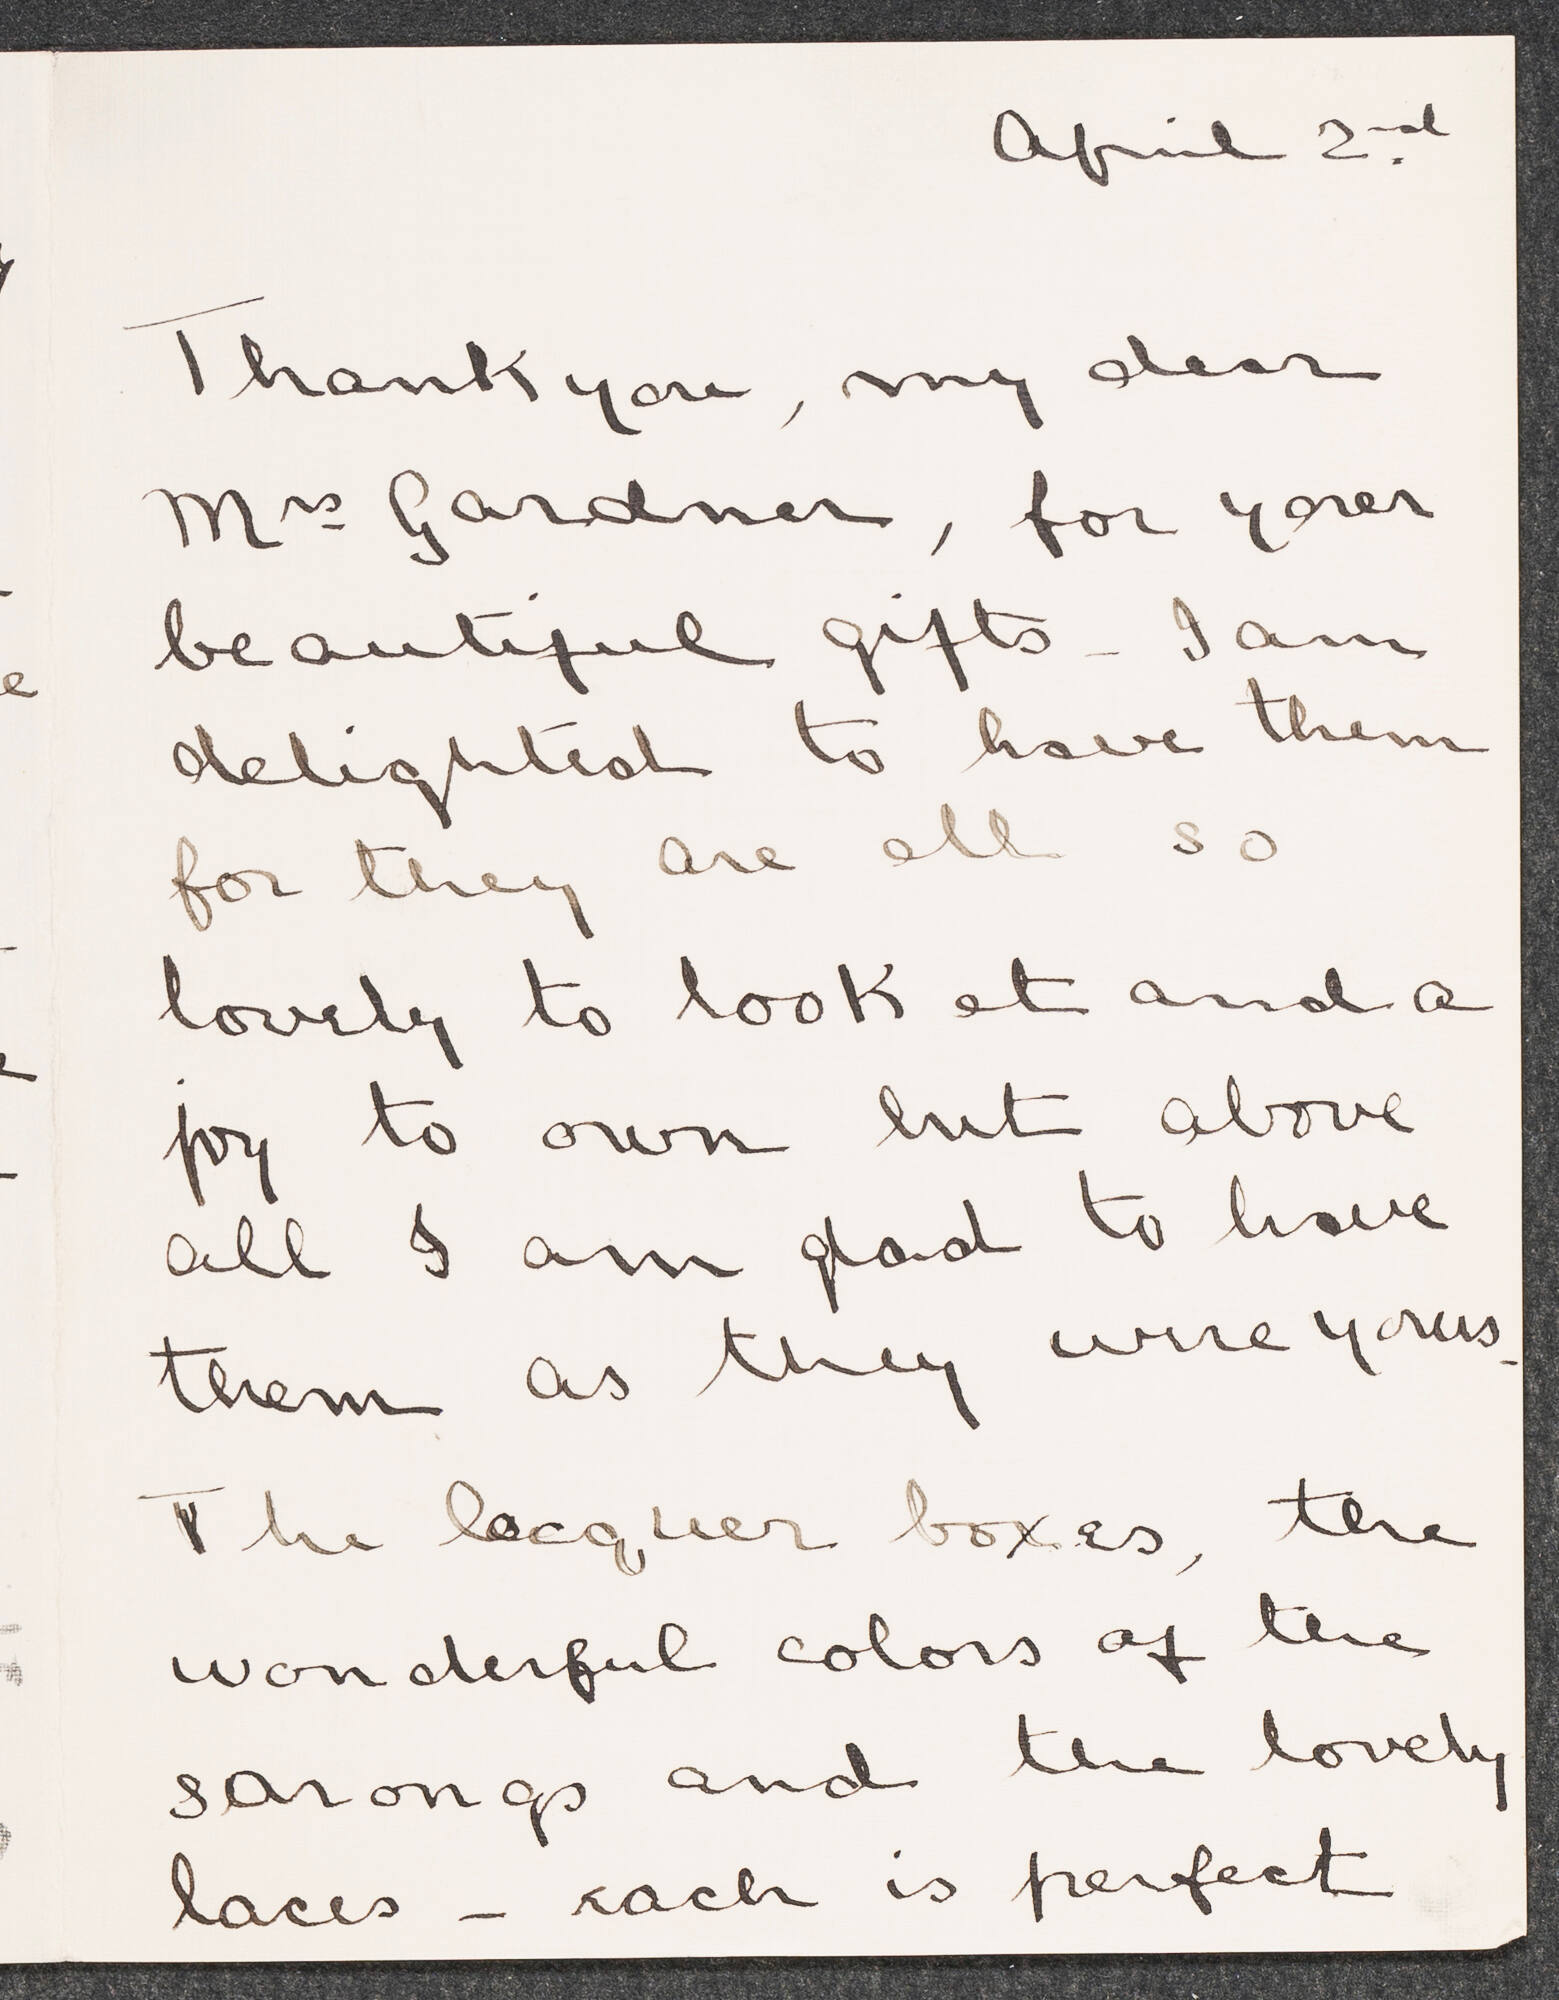 April 2nd.
Thank you, my dear
Mrs Gardner, for your
beautiful gifts - I am
delighted to have them
for they are all so
lovely to look at and a
joy to own but above
all I am glad to have
them as they were yours -
The lacquer boxes, the
wonderful colors of the
sarongs and the lovely
laces - each is perfect